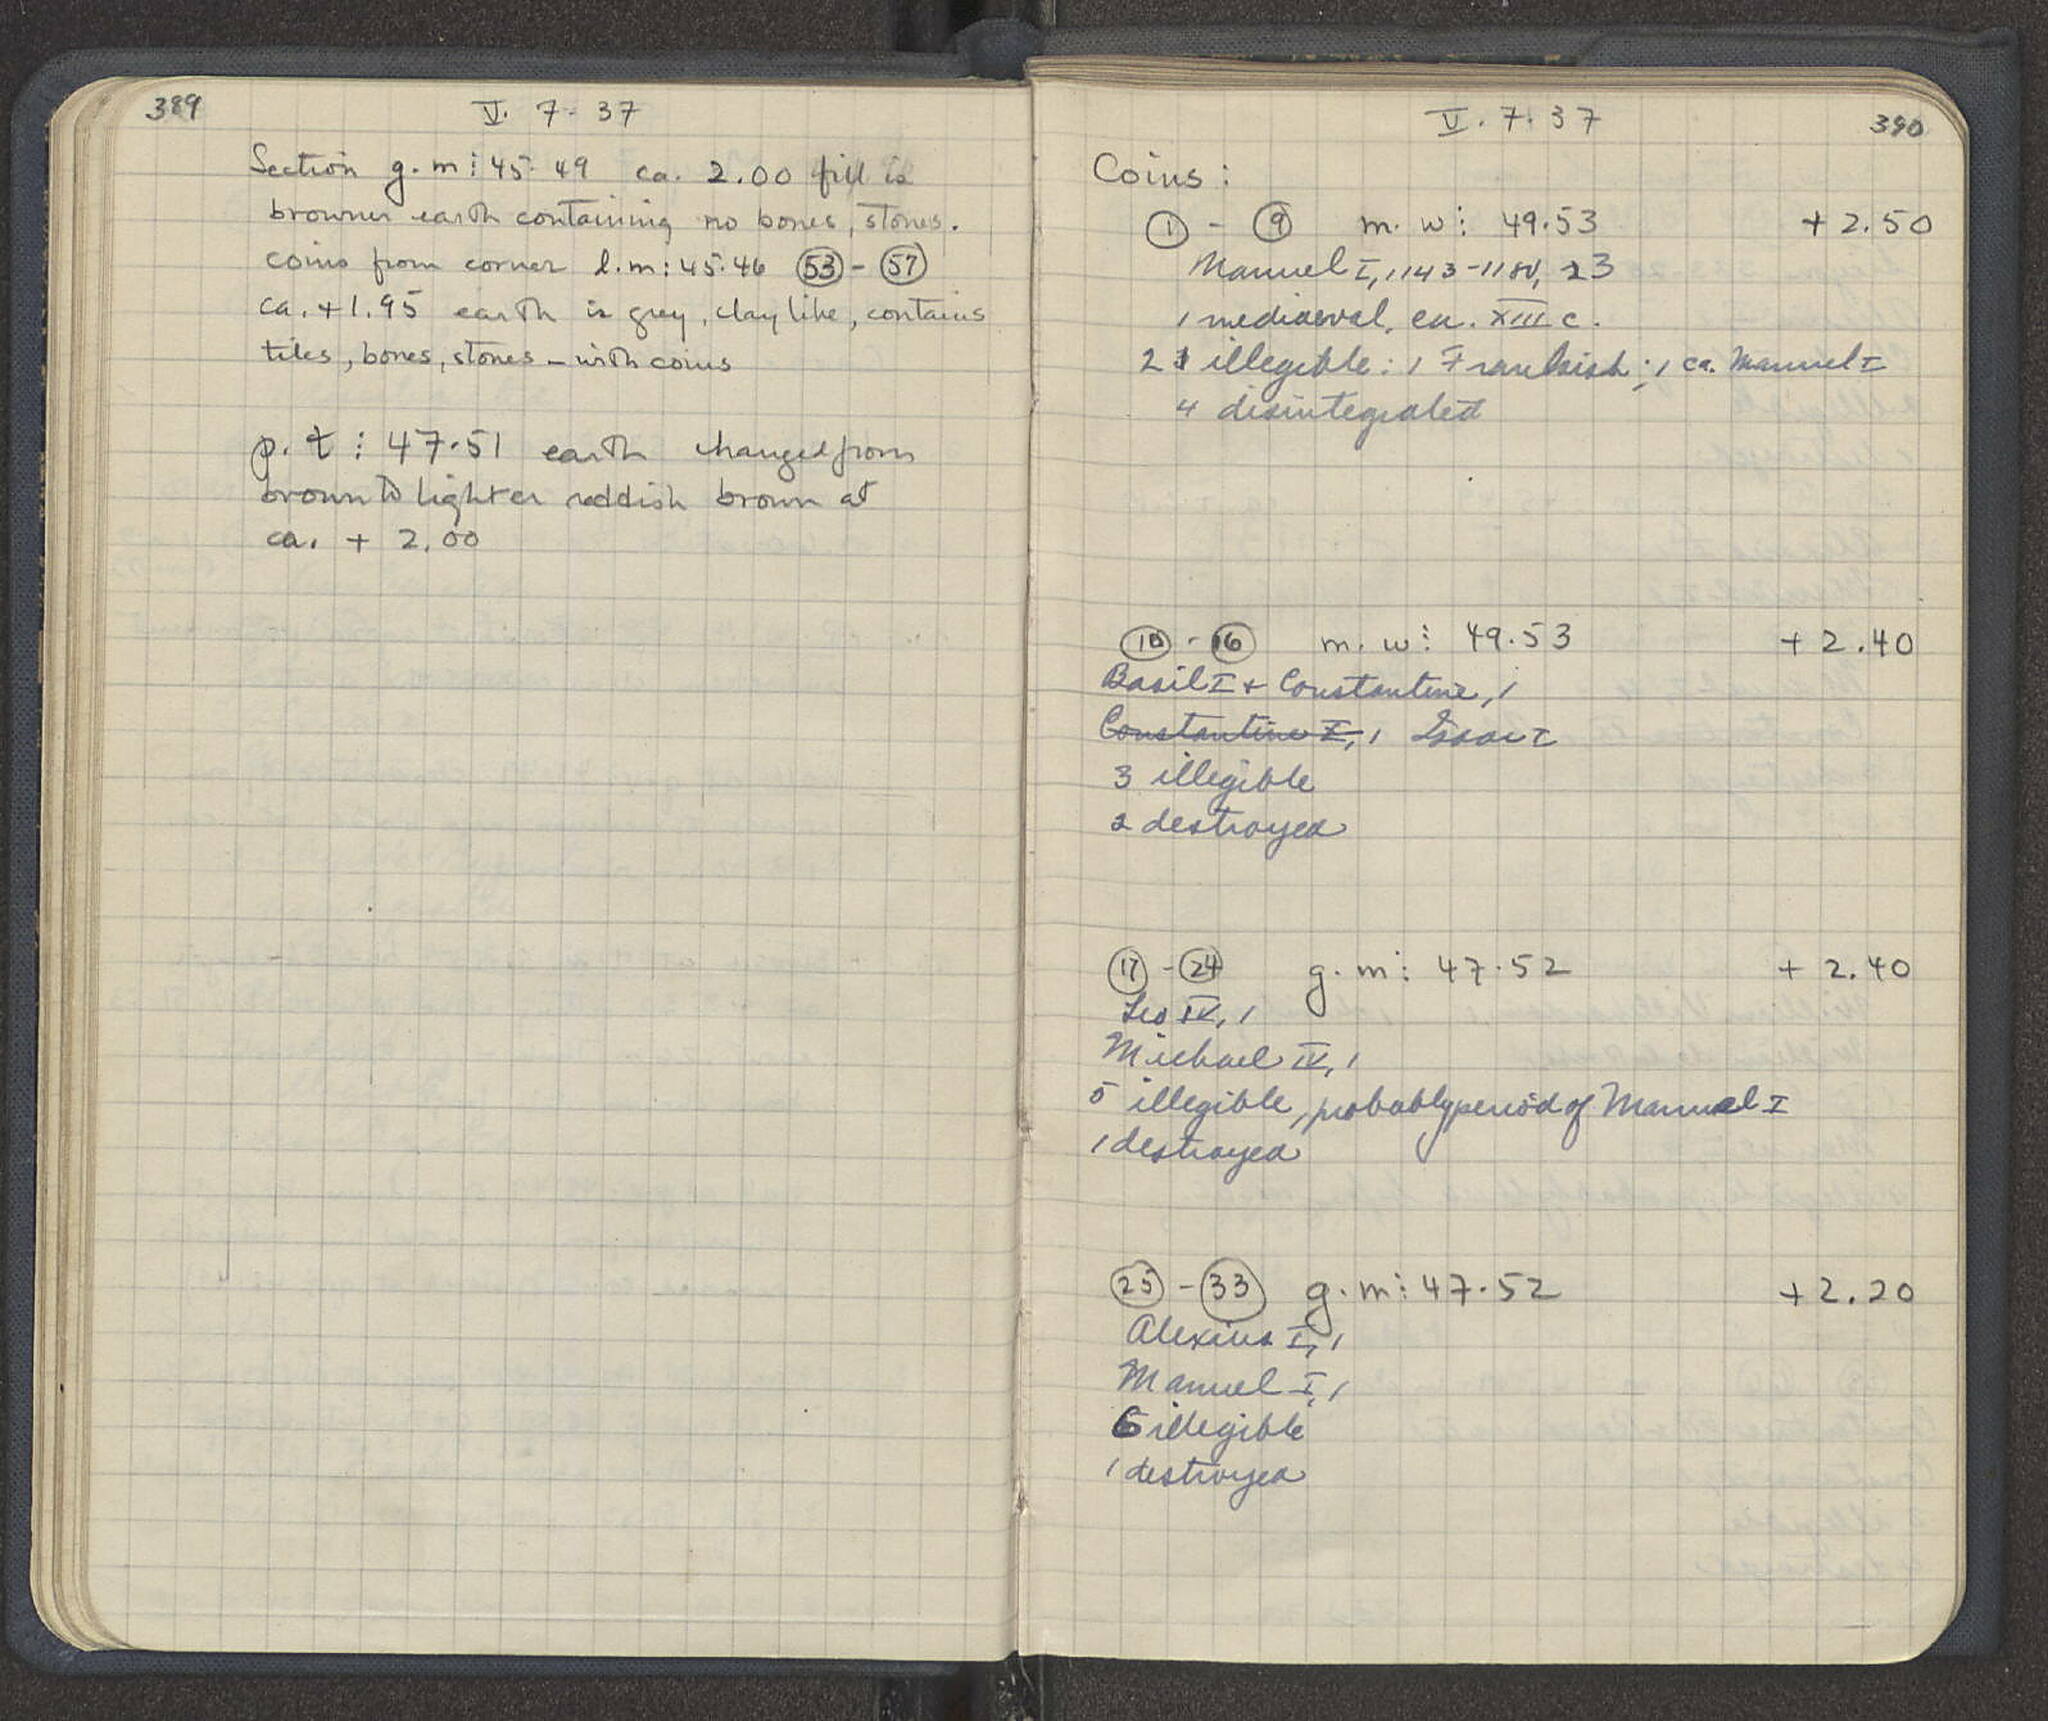 389
V. 7. 37
Section g.m: 45.49 ca. 2.00 fill is
browner earth containing no bones, stones.
coins from corner l.m: 45.46 (53) - (57)
ca. +1.95 earth is grey, clay like, contains
tiles, bones, stones - with coins
p.t: 47.51 earth changed from
brown to lighter reddish brown at
ca. + 2.00
V. 7. 37
390
Coins:
(1) - (9) m.w: 49.53 + 2.50
Manuel I, 1143-1180, 3
1 mediaeval, ca. XIII c.
2 illegible: 1 Frankish; 1 ca. Manuel I
4 disintegrated
(10) - (16) m.w: 49.53 + 2.40
Basil I + Constantine, 1
Constantine X, 1 Isaac I
3 illegible
2 destroyed
(17) - (24) g.m: 47.52 + 2.40
Leo IV, 1
Michael IV, 1
5 illegible, probably period of Manuel I
1 destroyed
(25) - (33) g.m: 47.52 + 2.20
Alexius I, 1
Manuel I, 1
6 illegible
1 destroyed